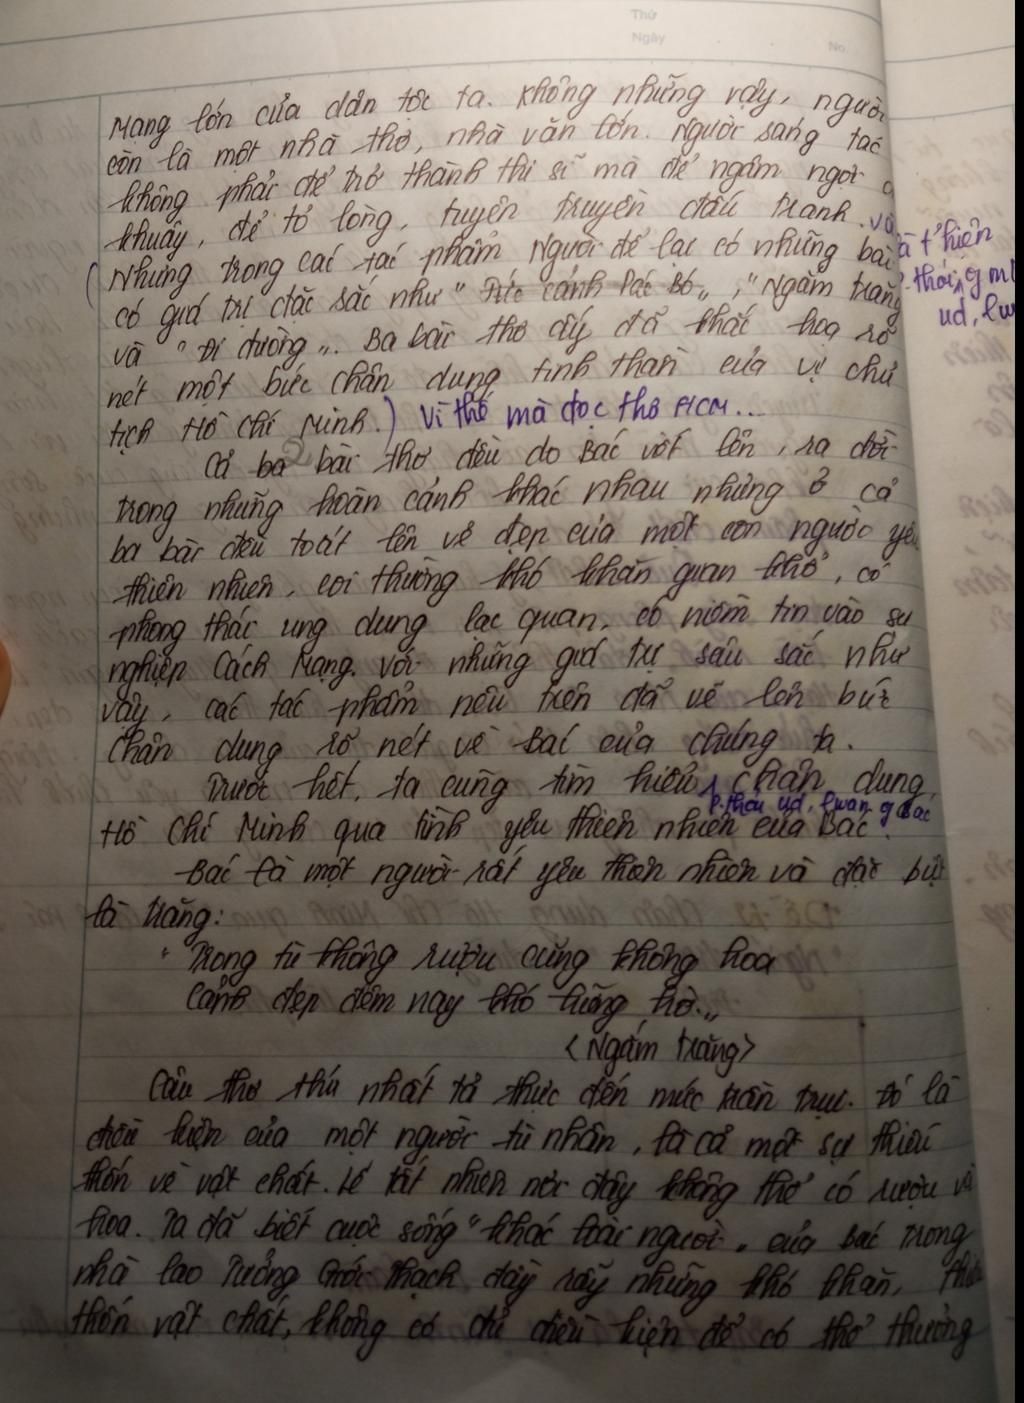 Thứ
Ngày
No.
Mạng lớn của dân tộc ta. Không những vậy, người
còn là một nhà thơ, nhà văn lớn. Người sáng tác
không phải để trở thành thi sĩ mà để ngâm ngợi
khuây, để tỏ lòng, tuyên truyền đấu tranh. và
(Nhưng trong các tác phẩm Người để lại có những bài
có giá trị đặc sắc như "Tức cảnh Pác Bó", "Ngắm trăng
và "Đi đường". Ba bài thơ ấy đã khắc hoạ rõ
nét một bức chân dung tinh thần của vị chủ
tịch Hồ Chí Minh.) Vì thế mà đọc thơ HCM...
Cả ba 2 bài thơ đều do Bác viết lên, ra đời
trong những hoàn cảnh khác nhau nhưng ở cả
ba bài đều toát lên vẻ đẹp của một con người yêu
thiên nhiên, coi thường khó khăn gian khổ, có
phong thái ung dung lạc quan, có niềm tin vào sự
nghiệp Cách Mạng. Với những giá trị sâu sắc như
vậy, các tác phẩm nêu trên đã vẽ lên bức
chân dung rõ nét về Bác của chúng ta.
Trước hết, ta cùng tìm hiểu chân dung
P.thái ud, lquan của Bác
Hồ Chí Minh qua tình yêu thiên nhiên của Bác.
Bác là một người rất yêu thiên nhiên và đặc biệt
là trăng:
"Trong tù không rượu cũng không hoa
Cảnh đẹp đêm nay khó hững hờ."
<Ngắm trăng>
Câu thơ thứ nhất tả thực đến mức trần trụi. Đó là
điều kiện của một người tù nhân, là cả một sự thiếu
thốn về vật chất. Lẽ tất nhiên nơi đây không thể có rượu và
hoa. Ta đã biết cuộc sống "khác loài người" của Bác trong
nhà lao Tưởng Giới Thạch đầy rẫy những khó khăn, thiếu
thốn vật chất, không có đủ điều kiện để có thể thưởng